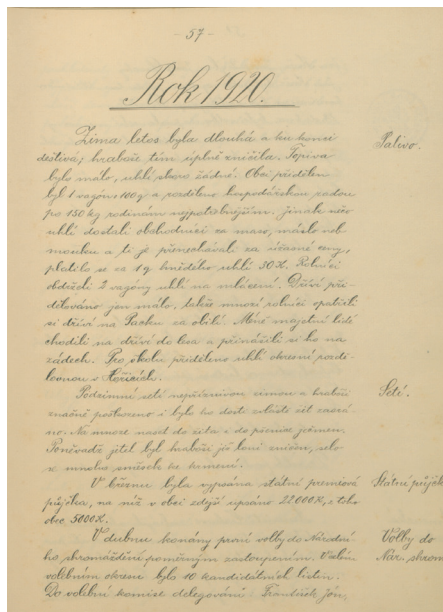 - 57 -
Rok 1920.
Zima letos byla dlouhá a ku konci
deštivá; hraboše tím úplně zničila. Topiva
Palivo.
bylo málo, uhlí skoro žádné. Obci přidělen
byl 1 vagón, 100 q a rozděleno hospodářskou radou
po 150 kg rodinám nejpotřebnějším. Jinak něco
uhlí dostali obchodníci za maso, máslo neb
mouku a ti je přenechávali za úžasné ceny,
platilo se za 1 q hnědého uhlí 30 K. Rolníci
obdrželi 2 vagony uhlí na mlácení. Dříví při-
dělováno jen málo, takže mnozí rolníci opatřili
si dříví na Packu za obilí. Méně majetní lidé
chodili na dříví do lesa a přinášeli si ho na
zádech. Pro školu přiděleno uhlí okresní rozdí-
lovnou v Hořicích.
Podzimní setí nepříznivou zimou a hraboši
Setí.
značně poškozeno i bylo ho dosti zvláště žit zaorá-
no. Na mnoze naset do žita i do pšenice ječmen.
Poněvadž jetel byl hraboši již loni zničen, selo
se mnoho směsek ke krmení.
V březnu byla vypsána státní premiová
Státní půjčk
půjčka, na níž v obci zdejší upsáno 22.000 K, z toho
obec 5000 K.
V dubnu konány první volby do Národní-
Volby do
ho shromáždění poměrným zastoupením. V našem
Nár. shrom
volebním okresu bylo 10 kandidátních listin.
Do volební komise delegováni: František Jón,